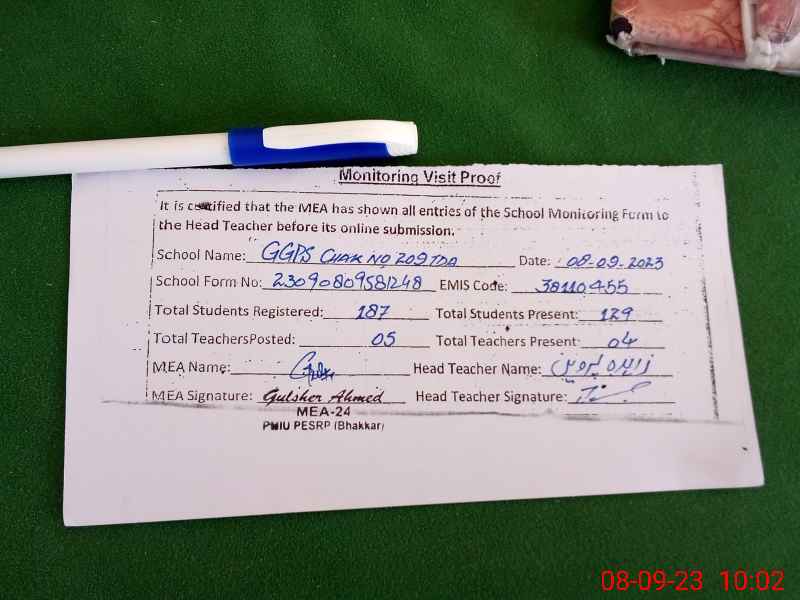 Monitoring Visit Proof
It is certified that the MEA has shown all entries of the School Monitoring Form to
the Head Teacher before its online submission.
School Name: GGPS CHAK NO 209 TDA Date: 08-09-2023
School Form No: 23090809581248 EMIS Code: 38110455
Total Students Registered: 187 Total Students Present: 129
Total TeachersPosted: 05 Total Teachers Present: 04
MEA Name: Head Teacher Name: زبیدہ پروین
MEA Signature: Gulsher Ahmed Head Teacher Signature:
MEA-24
PMIU PESRP (Bhakkar)
08-09-23 10:02